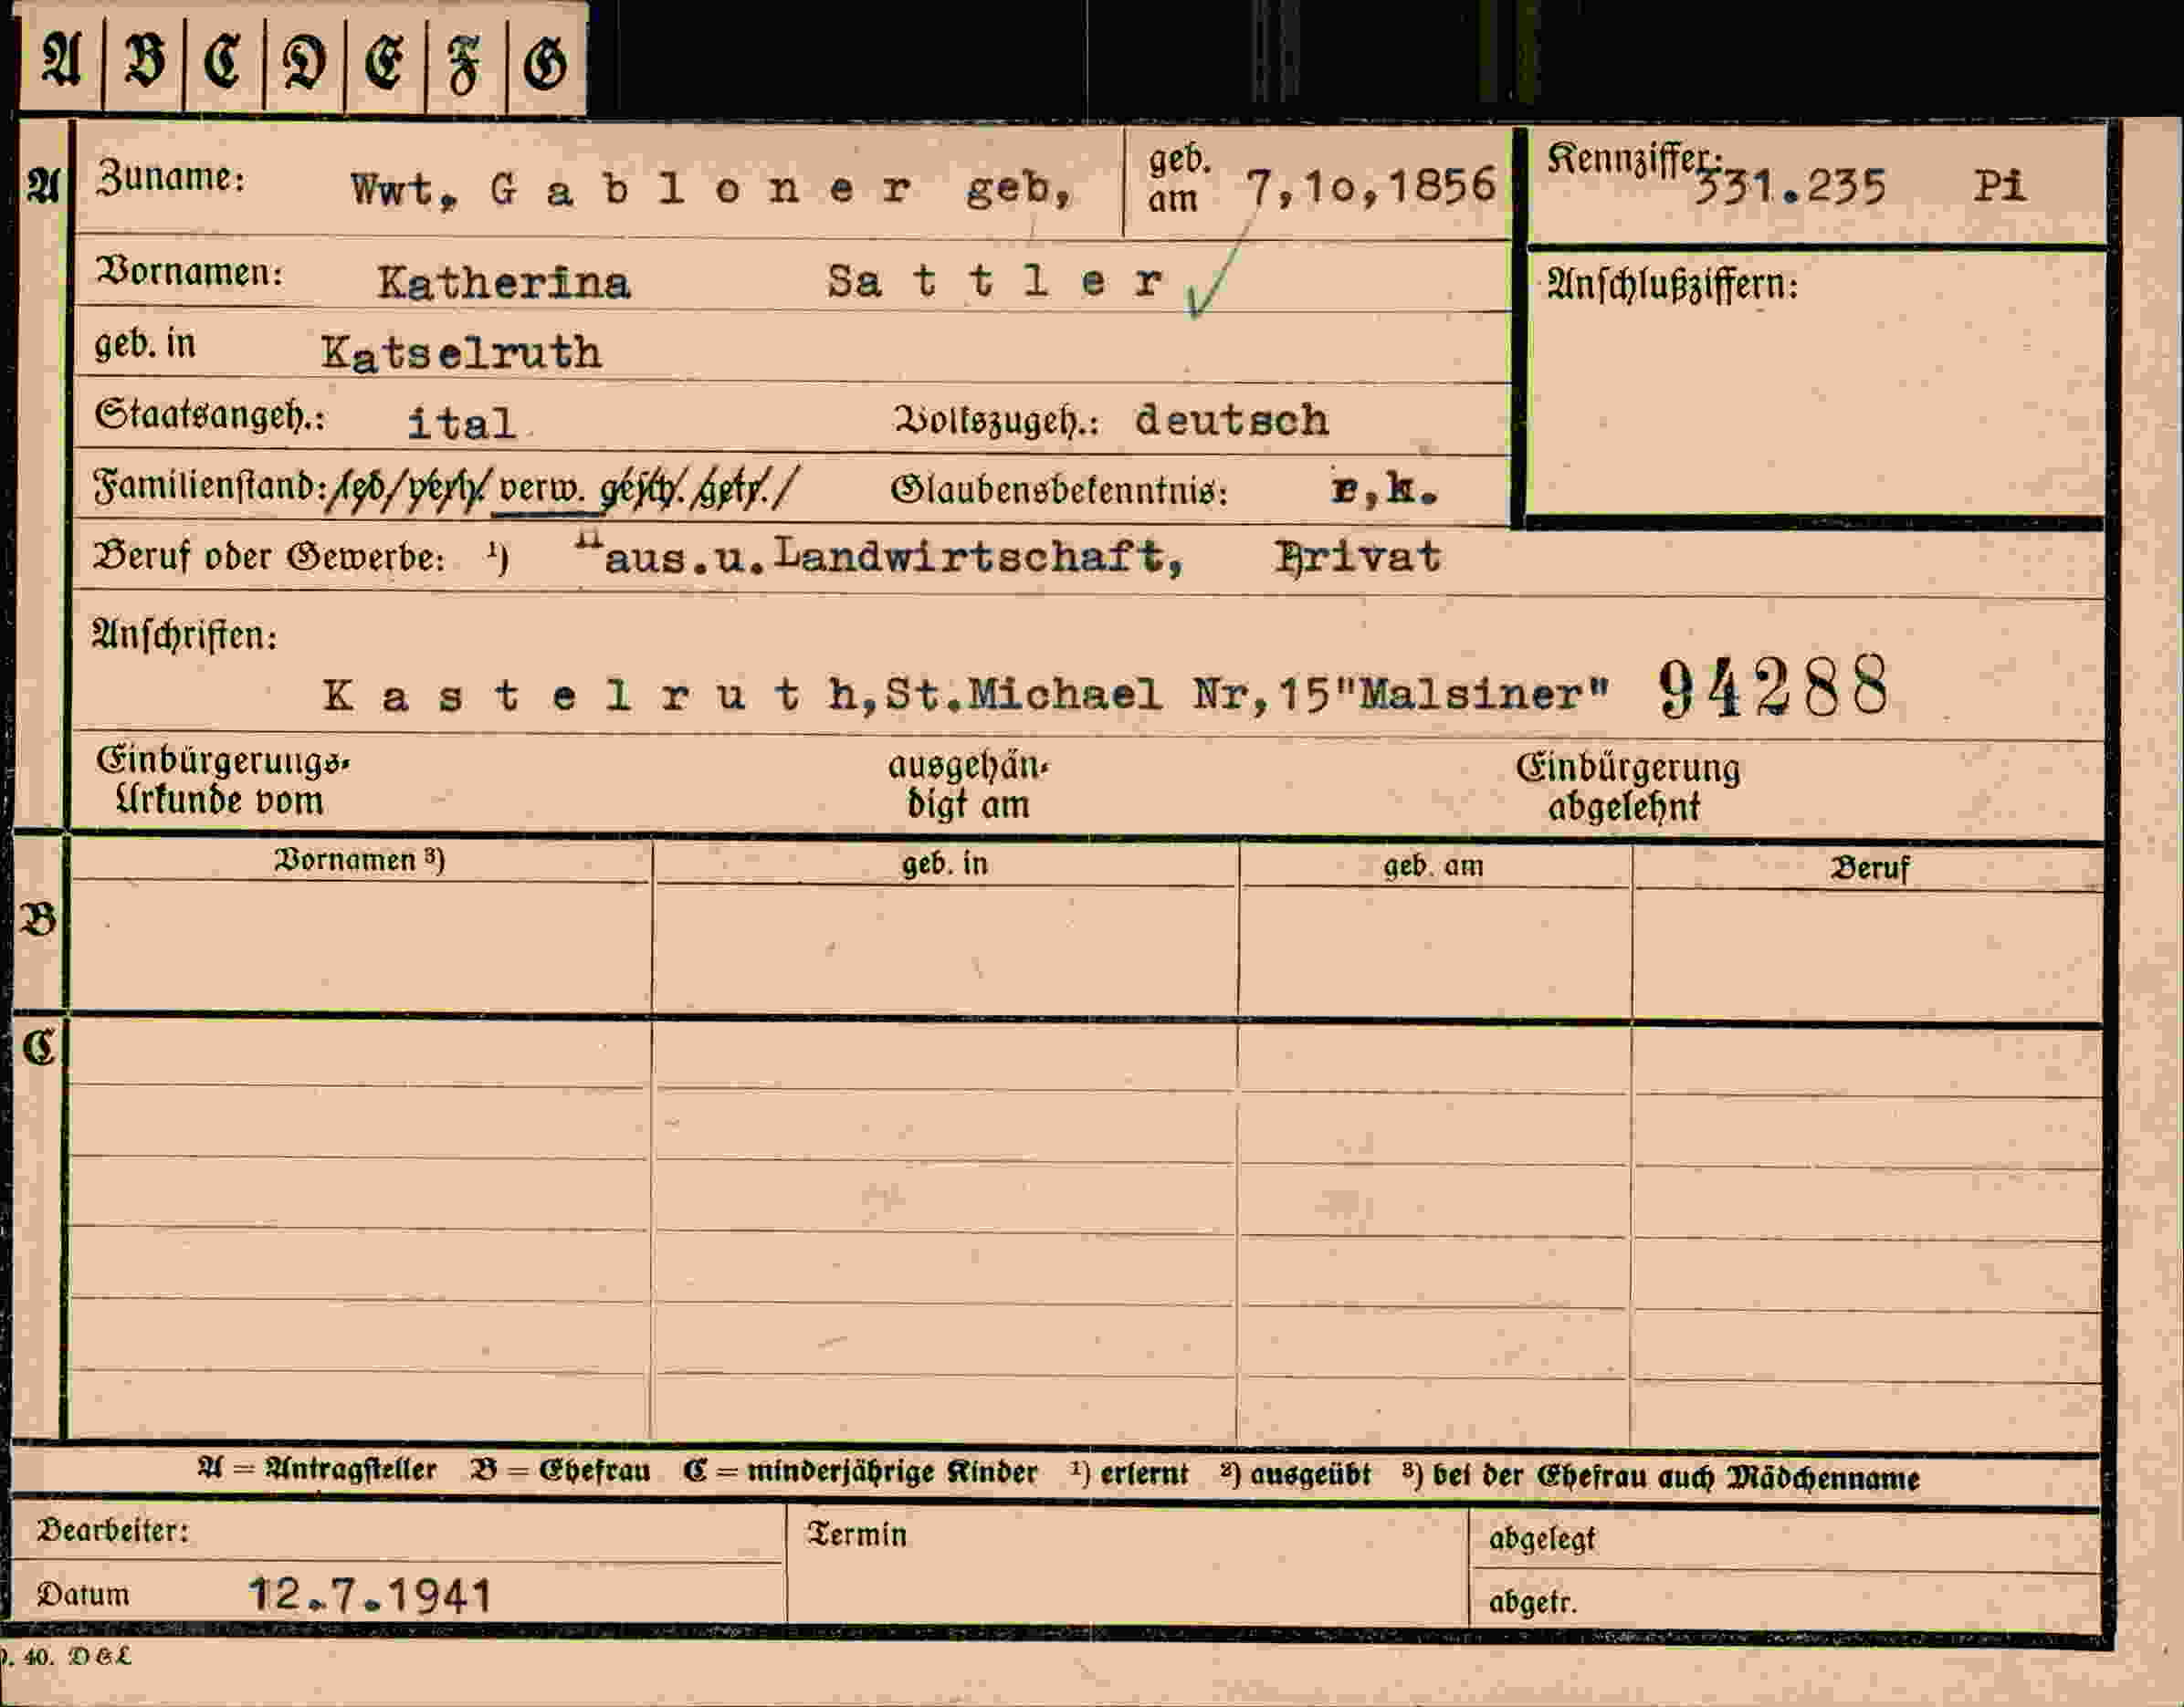 A B C D E F G
A Zuname: Wwt. Gabloner geb, geb. am 7,10,1856 Kennziffer: 331.235 Pi
Vornamen: Katherina Sattler Anschlußziffern:
geb. in Katselruth
Staatsangeh.: ital Volkszugeh.: deutsch
Familienstand: led/verh/ verw. gesch./getr./ Glaubensbekenntnis: r,k.
Beruf oder Gewerbe: ¹) Haus.u.Landwirtschaft, Privat
Anschriften:
Kastelruth,St.Michael Nr,15"Malsiner" 94288
Einbürgerungs- ausgehän- Einbürgerung
Urkunde vom digt am abgelehnt
Vornamen ³) geb. in geb. am Beruf
B
C
A = Antragsteller B = Ehefrau C = minderjährige Kinder ¹) erlernt ²) ausgeübt ³) bei der Ehefrau auch Mädchenname
Bearbeiter: Termin abgelegt
Datum 12.7.1941 abgetr.
40. D&L